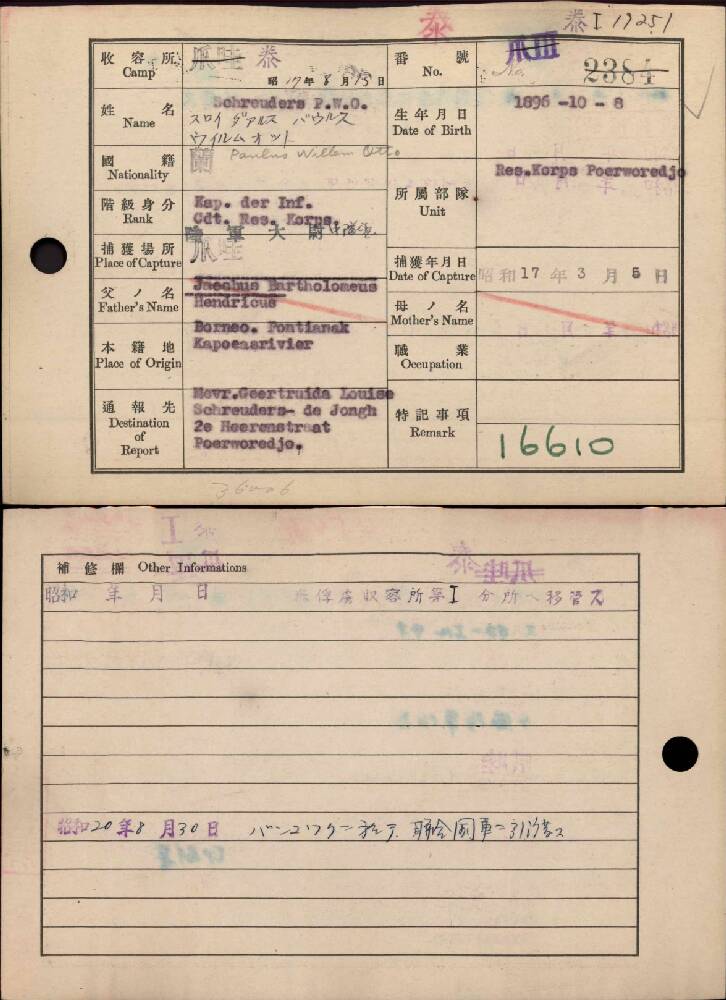 泰
泰I 19251
収容所 Camp
爪哇 泰
昭17年8月15日
番號 No.
爪III
No. 2384
姓名 Name
Schreuders P.W.O.
スロイダアルス パウルス
ウイルムオット
Paulus Willem Otto
生年月日 Date of Birth
1896 -10 - 8
國籍 Nationality
蘭
階級身分 Rank
Kap. der Inf.
Cdt. Res. Korps.
陸軍大尉
所属部隊 Unit
Res.Korps Poerworedjo
捕獲場所 Place of Capture
爪哇
捕獲年月日 Date of Capture
昭和17年3月5日
父ノ名 Father's Name
Jacobus Bartholomeus
Hendricus
母ノ名 Mother's Name
本籍地 Place of Origin
Borneo. Pontianak
Kapoeasrivier
職業 Occupation
通報先 Destination of Report
Mevr.Geertruida Louise
Schreuders- de Jongh
2e Heerenstraat
Poerworedjo.
特記事項 Remark
16610
補修欄 Other Informations
昭和 年 月 日 泰俘虜収容所第I分所ヘ移管ス
昭和20年8月30日 バンコツクニ於テ 聯合國軍ニ引渡ス